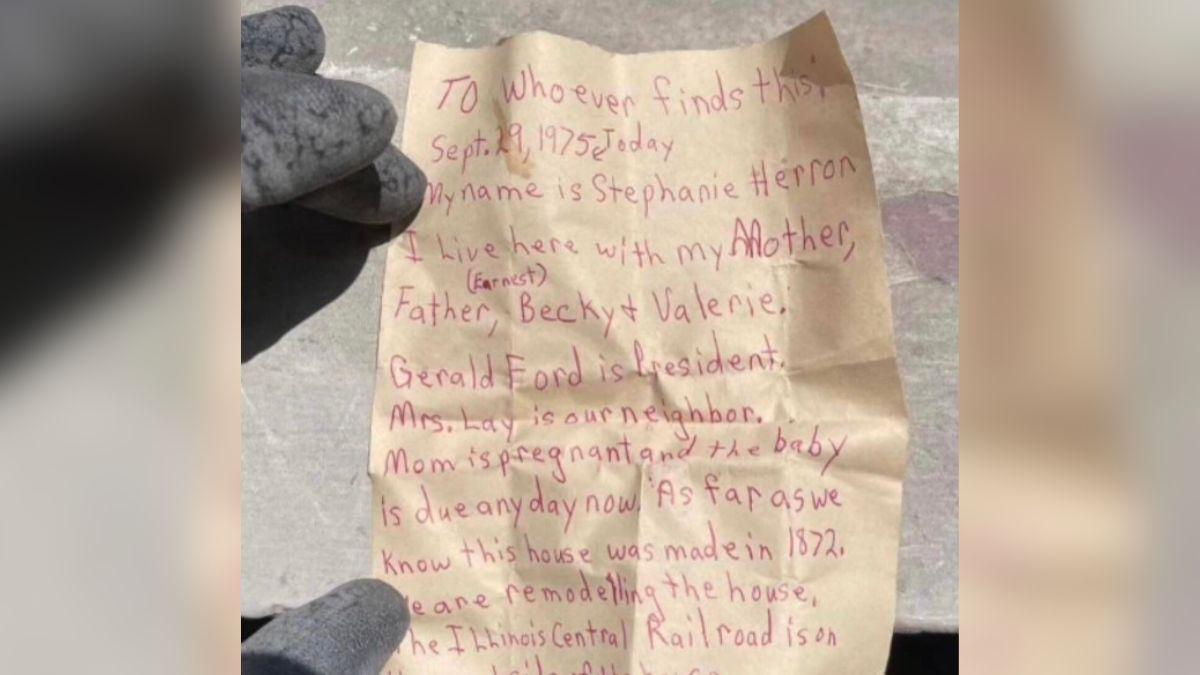 TO Whoever finds this!
Sept. 29, 1975 Today
My name is Stephanie Herron
I Live here with my Mother,
(Earnest)
Father, Becky + Valerie.
Gerald Ford is President.
Mrs. Lay is our neighbor.
Mom is pregnant and the baby
is due any day now. As far as we
Know this house was made in 1872.
We are remodelling the house.
The ILLinois Central Railroad is on